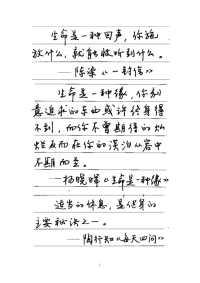 生命是一种回声，你施
放什么，就能收听到什么。
——陈染《一封信》
生命是一种缘，你刻
意追求的东西或许终身得
不到，而你不曾期待的灿
烂反而在你的淡泊从容中
不期而至。
——杨晓晖《生命是一种缘》
适当的休息，是健身的
主要秘诀之一。
——陶行知《每天四问》
1